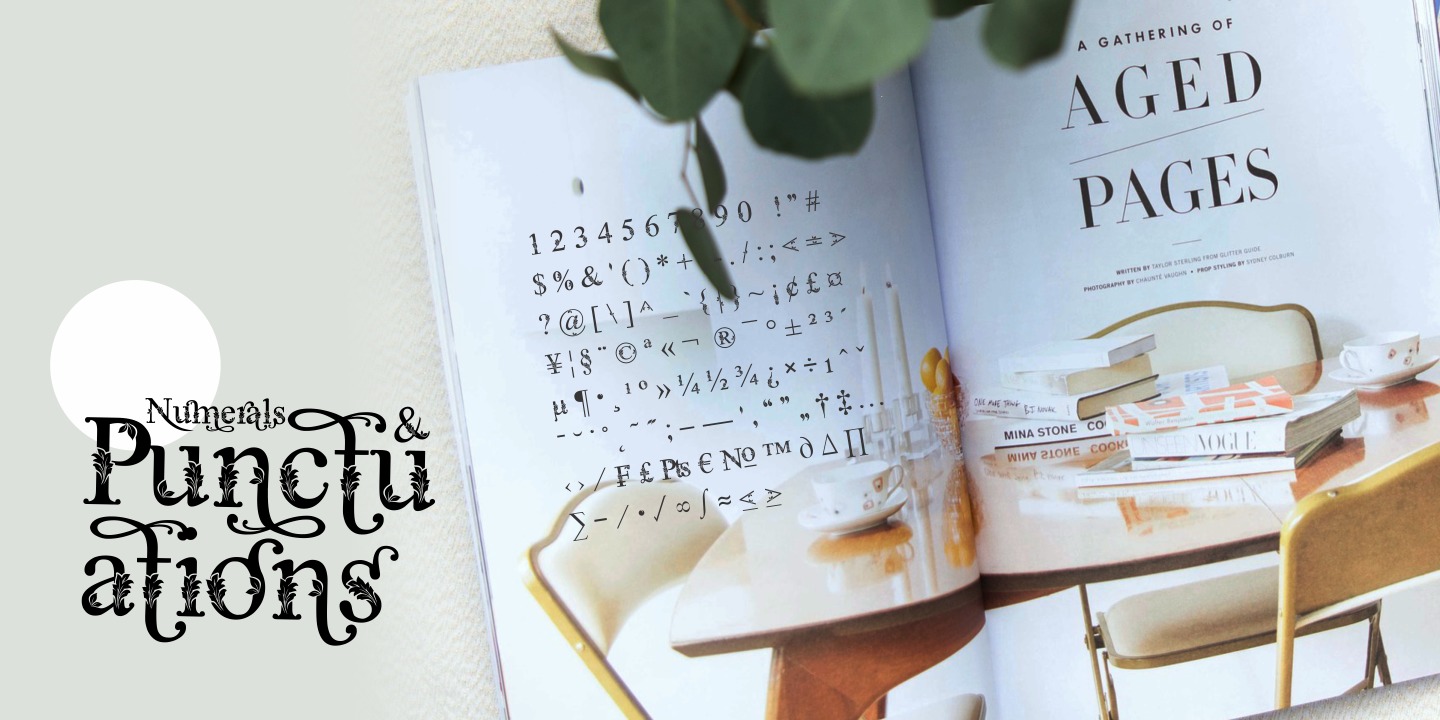 Numerals
Punctu &
ations
1 2 3 4 5 6 7 8 9 0 ! ” #
$ % & ' ( ) * + - . / : ; < = >
? @ [ \ ] ^ _ ` { | } ~ ¡ ¢ £ ¤
¥ ¦ § ¨ © ª « ¬ ® ¯ ° ± ² ³ ´
µ ¶ • ¸ ¹ º » ¼ ½ ¾ ¿ × ÷ 1 ˆ ˇ
– — ‚ “ ” „ † ‡ ...
‹ › ⁄ ₣ ₤ ₧ € № ™ ∂ ∆ ∏
∑ − ∕ ∙ √ ∞ ∫ ≈ ≤ ≥
A GATHERING OF
AGED
PAGES
WRITTEN BY TAYLOR STERLING FROM GLITTER GUIDE
PHOTOGRAPHY BY CHAUNTÉ VAUGHN • PROP STYLING BY SYDNEY COLBURN
ONE MORE THING B.J. NOVAK
MINA STONE COO
VOGUE